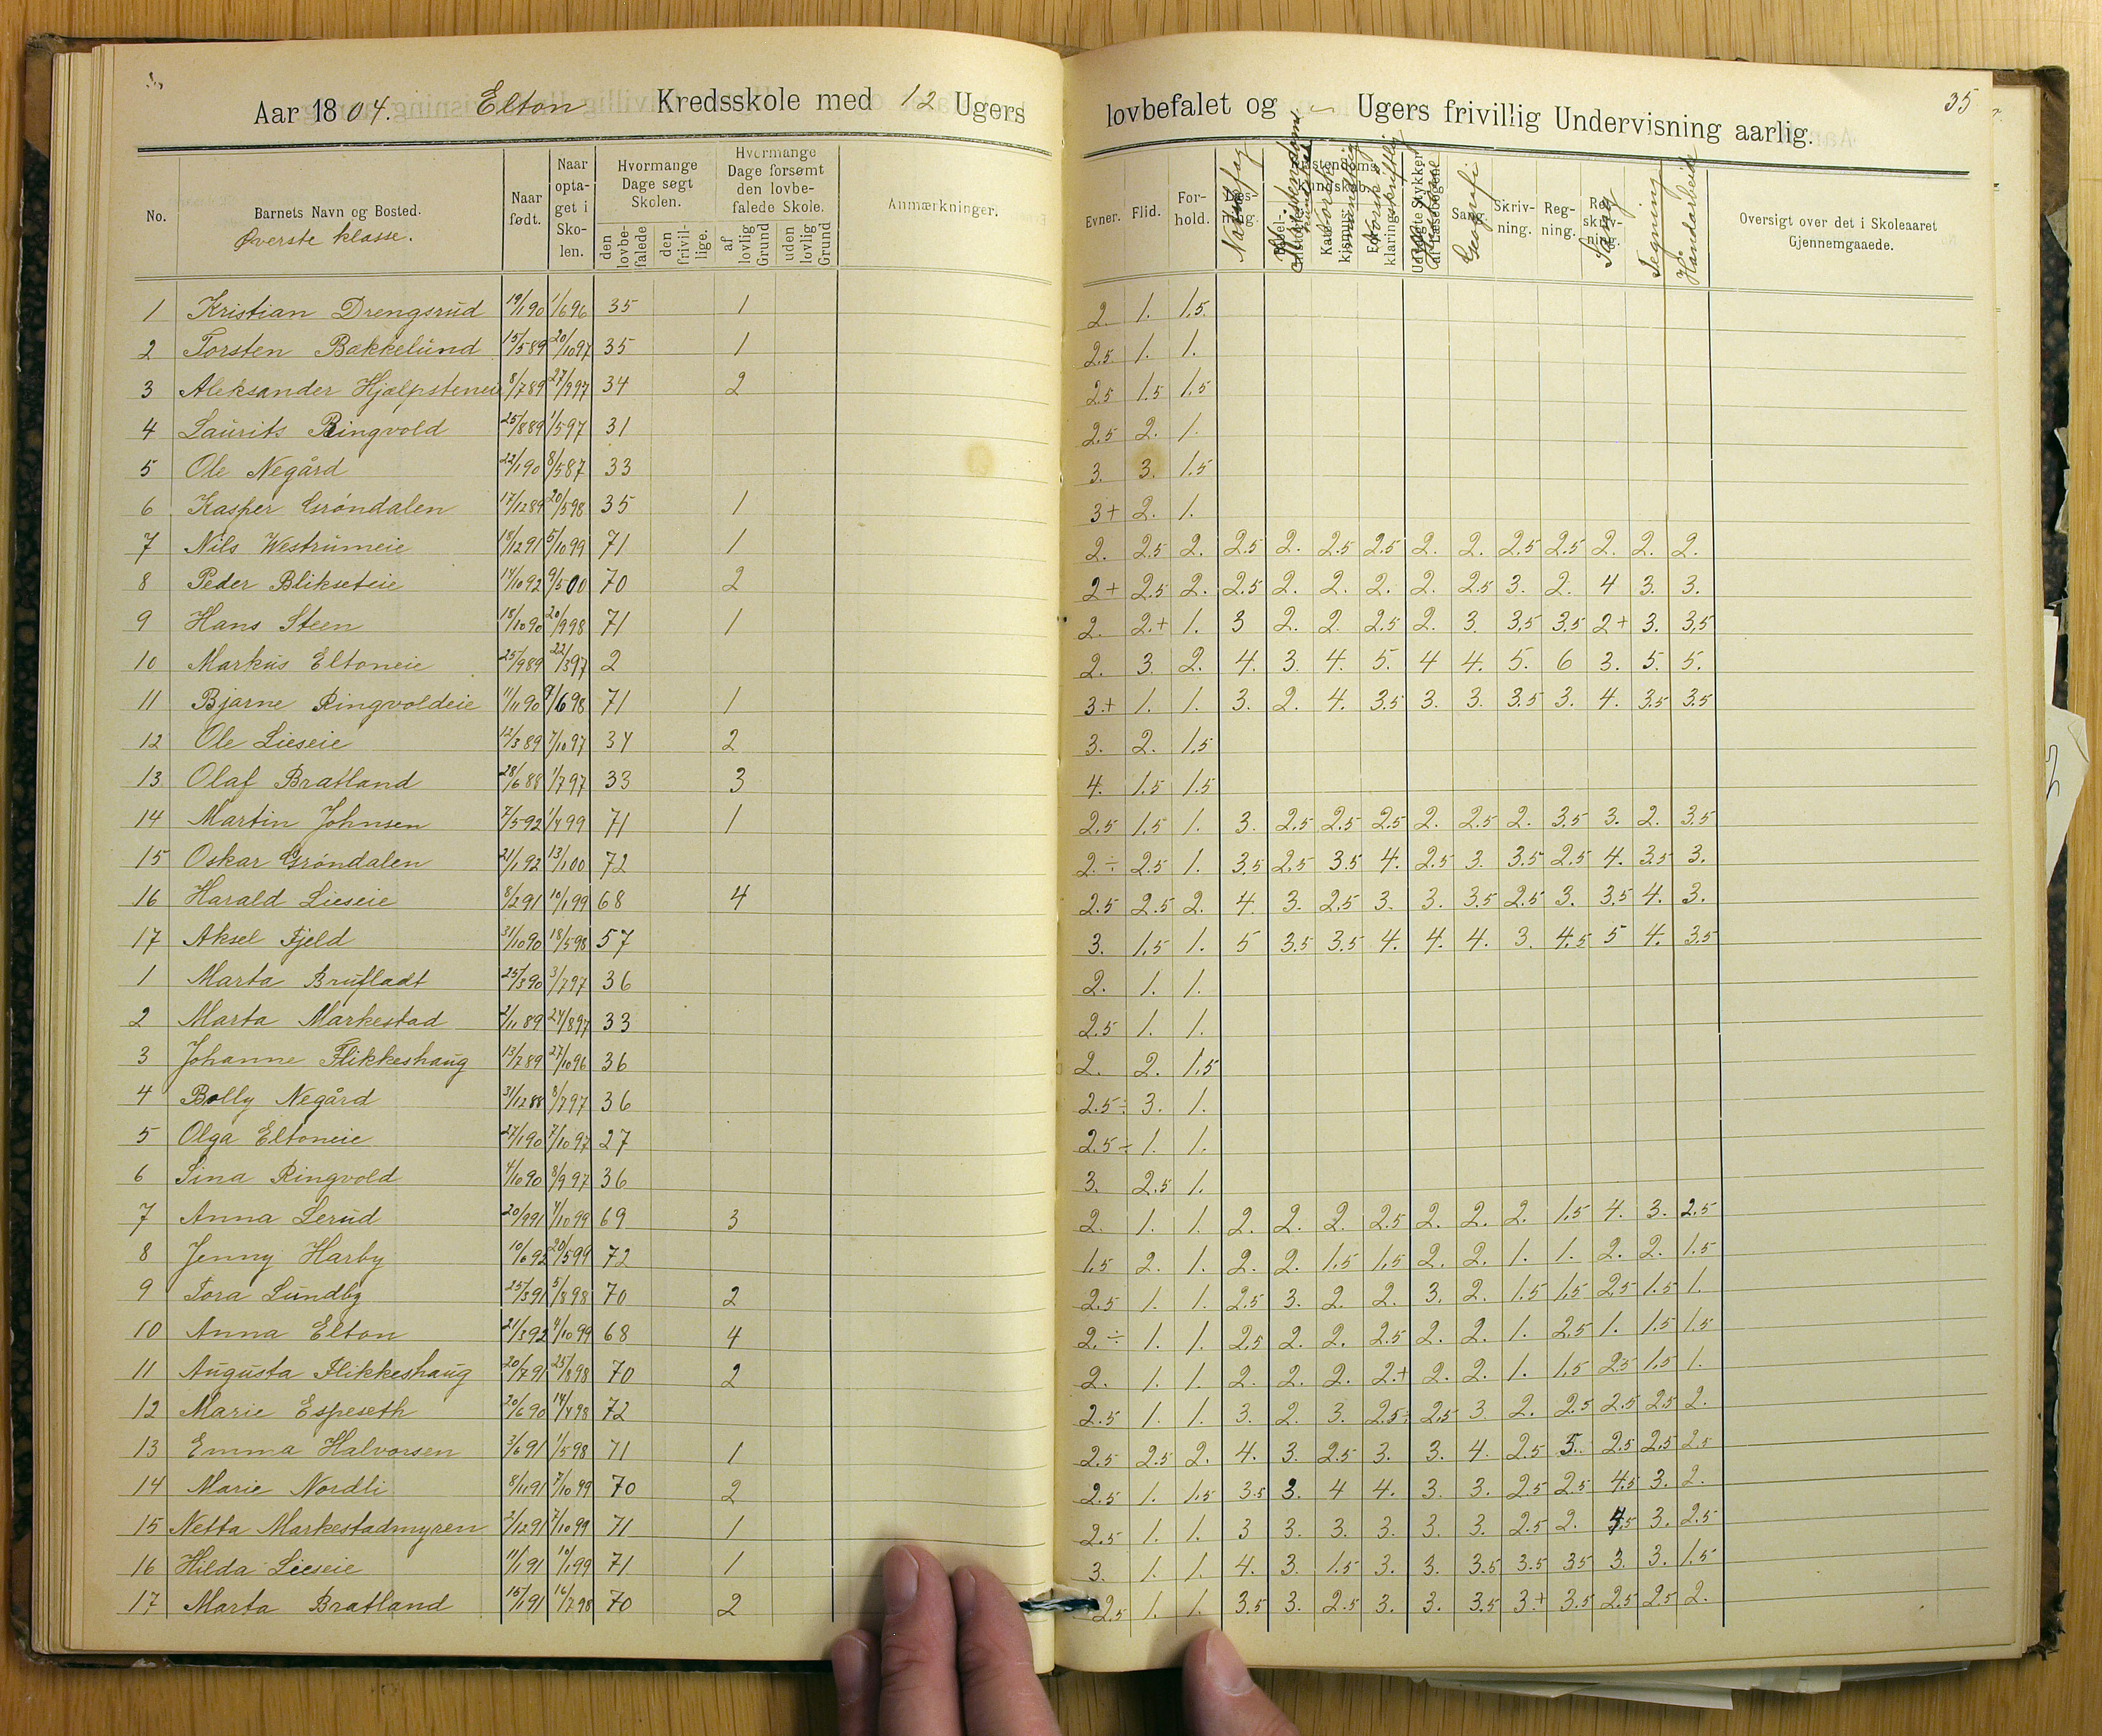 Aar 1804. Elton Kredsskole med 12 Ugers lovbefalet og Ugers frivillig Undervisning aarlig. 35
No. Barnets Navn og Bosted. Naar født. Naar opta- get i Sko- len. Hvormange Dage søgt Skolen. Hvormange Dage forsømt den lovbe- falede Skole. Anmærkninger. Evner. Flid. For- hold. Skriv- ning. Reg- ning. Sang Tegning Håndarbeide Oversigt over det i Skoleaaret Gjennemgaaede.
Øverste klasse. den lovbe- falede den frivil- lige. af lovlig Grund uden lovlig Grund Geografi
1 Kristian Drengsrud 19/1 90 1/6 96 35 1 2. 1. 1.5.
2 Torsten Bakkelund 15/5 89 20/10 97 35 1 2.5 1. 1.
3 Aleksander Hjælpsteneie 8/7 89 27/9 97 34 2 2.5 1.5 1.5
4 Laurits Ringvold 25/8 89 1/5 97 31 2.5 2. 1.
5 Ole Negård 22/1 90 8/5 87 33 3. 3. 1.5
6 Kasper Grøndalen 17/12 89 20/5 98 35 1 3+ 2. 1.
7 Nils Westrumeie 18/12 91 5/10 99 71 1 2. 2.5 2. 2.5 2. 2.5 2.5 2. 2. 2.5 2.5 2. 2. 2.
8 Peder Blikseteie 14/10 92 9/5 00 70 2 2+ 2.5 2. 2.5 2. 2. 2. 2. 2.5 3. 2. 4 3. 3.
9 Hans Steen 18/10 90 20/9 98 71 1 2. 2.+ 1. 3 2. 2. 2.5 2. 3. 3.5 3.5 2+ 3. 3.5
10 Markus Eltoneie 25/9 89 22/3 97 2 2. 3. 2. 4. 3. 4. 5. 4 4. 5. 6 3. 5. 5.
11 Bjarne Ringvoldeie 11/11 90 9/6 98 71 1 3.+ 1. 1. 3. 2. 4. 3.5 3. 3. 3.5 3. 4. 3.5 3.5
12 Ole Lieseie 12/3 89 7/10 97 34 2 3. 2. 1.5
13 Olaf Bratland 28/6 88 1/7 97 33 3 4. 1.5 1.5
14 Martin Johnsen 7/5 92 1/4 99 71 1 2.5 1.5 1. 3. 2.5 2.5 2.5 2. 2.5 2. 3.5 3. 2. 3.5
15 Oskar Grøndalen 21/1 92 13/1 00 72 2.÷ 2.5 1. 3.5 2.5 3.5 4. 2.5 3. 3.5 2.5 4. 3.5 3.
16 Harald Lieseie 8/2 91 10/1 99 68 4 2.5 2.5 2. 4. 3. 2.5 3. 3. 3.5 2.5 3. 3.5 4. 3.
17 Aksel Fjeld 31/10 90 18/5 98 57 3. 1.5 1. 5 3.5 3.5 4. 4. 4. 3. 4.5 5 4. 3.5
1 Marta Brufladt 25/3 90 3/7 97 36 2. 1. 1.
2 Marta Markestad 2/11 89 24/8 97 33 2.5 1. 1.
3 Johanne Flikkeshaug 13/7 89 27/10 96 36 2. 2. 1.5
4 Bolly Negård 31/12 88 8/7 97 36 2.5÷ 3. 1.
5 Olga Eltoneie 27/1 90 7/10 97 27 2.5÷ 1. 1.
6 Sina Ringvold 4/10 90 8/9 97 36 3. 2.5 1.
7 Anna Lerud 20/9 91 4/10 99 69 3 2. 1. 1. 2. 2. 2. 2.5 2. 2. 2. 1.5 4. 3. 2.5
8 Jenny Harby 10/6 92 20/5 99 72 1.5 2. 1. 2. 2. 1.5 1.5 2. 2. 1. 1. 2. 2. 1.5
9 Tora Lundby 25/3 91 5/8 98 70 2 2.5 1. 1. 2.5 3. 2. 2. 3. 2. 1.5 1.5 2.5 1.5 1.
10 Anna Elton 21/3 92 4/10 99 68 4 2.÷ 1. 1. 2.5 2. 2. 2.5 2. 2. 1. 2.5 1. 1.5 1.5
11 Augusta Flikkeshaug 20/7 91 25/8 98 70 2 2. 1. 1. 2. 2. 2. 2.+ 2. 2. 1. 1.5 2.5 1.5 1.
12 Marie Espeseth 20/6 90 14/4 98 72 2.5 1. 1. 3. 2. 3. 2.5÷ 2.5 3. 2. 2.5 2.5 2.5 2.
13 Emma Halvorsen 3/6 91 1/5 98 71 1 2.5 2.5 2. 4. 3. 2.5 3. 3. 4. 2.5 5. 2.5 2.5 2.5
14 Marie Nordli 8/11 91 7/10 99 70 2 2.5 1. 1.5 3.5 3. 4 4. 3. 3. 2.5 2.5 4.5 3. 2.
15 Netta Markestadmyren 2/12 91 7/10 99 71 1 2.5 1. 1. 3 3. 3. 3. 3. 3. 2.5 2. 3. 2.5
16 Hilda Lieseie 11/1 91 10/1 99 71 1 3. 1. 1. 4. 3. 1.5 3. 3. 3.5 3.5 3.5 3. 3. 1.5
17 Marta Bratland 15/1 91 16/7 98 70 2 2.5 1. 1. 3.5 3. 2.5 3. 3. 3.5 3+ 3.5 2.5 2.5 2.